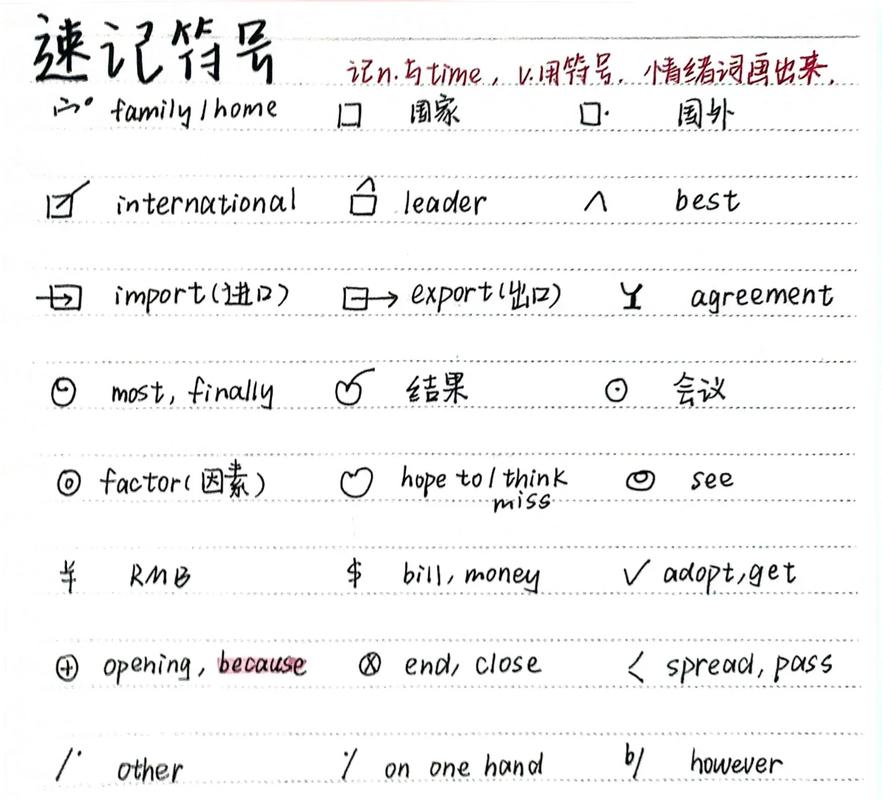 速记符号
记n.与time, v.用符号, 情绪词画出来.
family/home □ 国家 □· 国外
international leader ∧ best
import(进口) export(出口) agreement
most, finally 结果 ⊙ 会议
factor(因素) hope to/think see
miss
¥ RMB $ bill, money √ adopt, get
⊕ opening, because ⊗ end, close < spread, pass
/· other ·/ on one hand b/ however